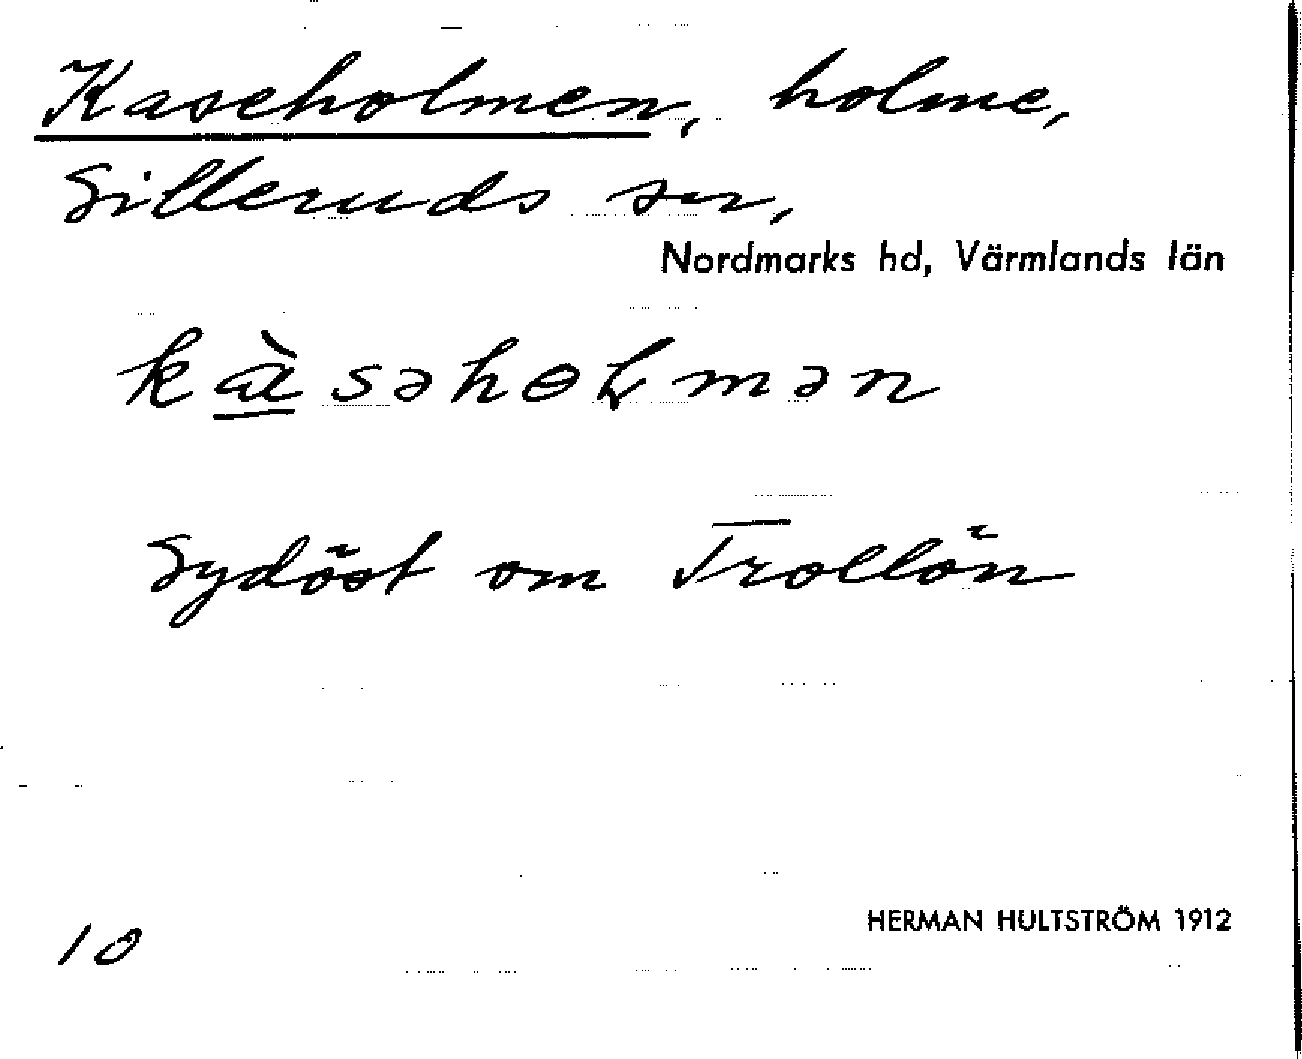 Kaseholmen, holme,
Silleruds sn,
Nordmarks hd, Värmlands län
kàsəhɵɫmən
Sydöst om Trollön
HERMAN HULTSTRÖM 1912
10